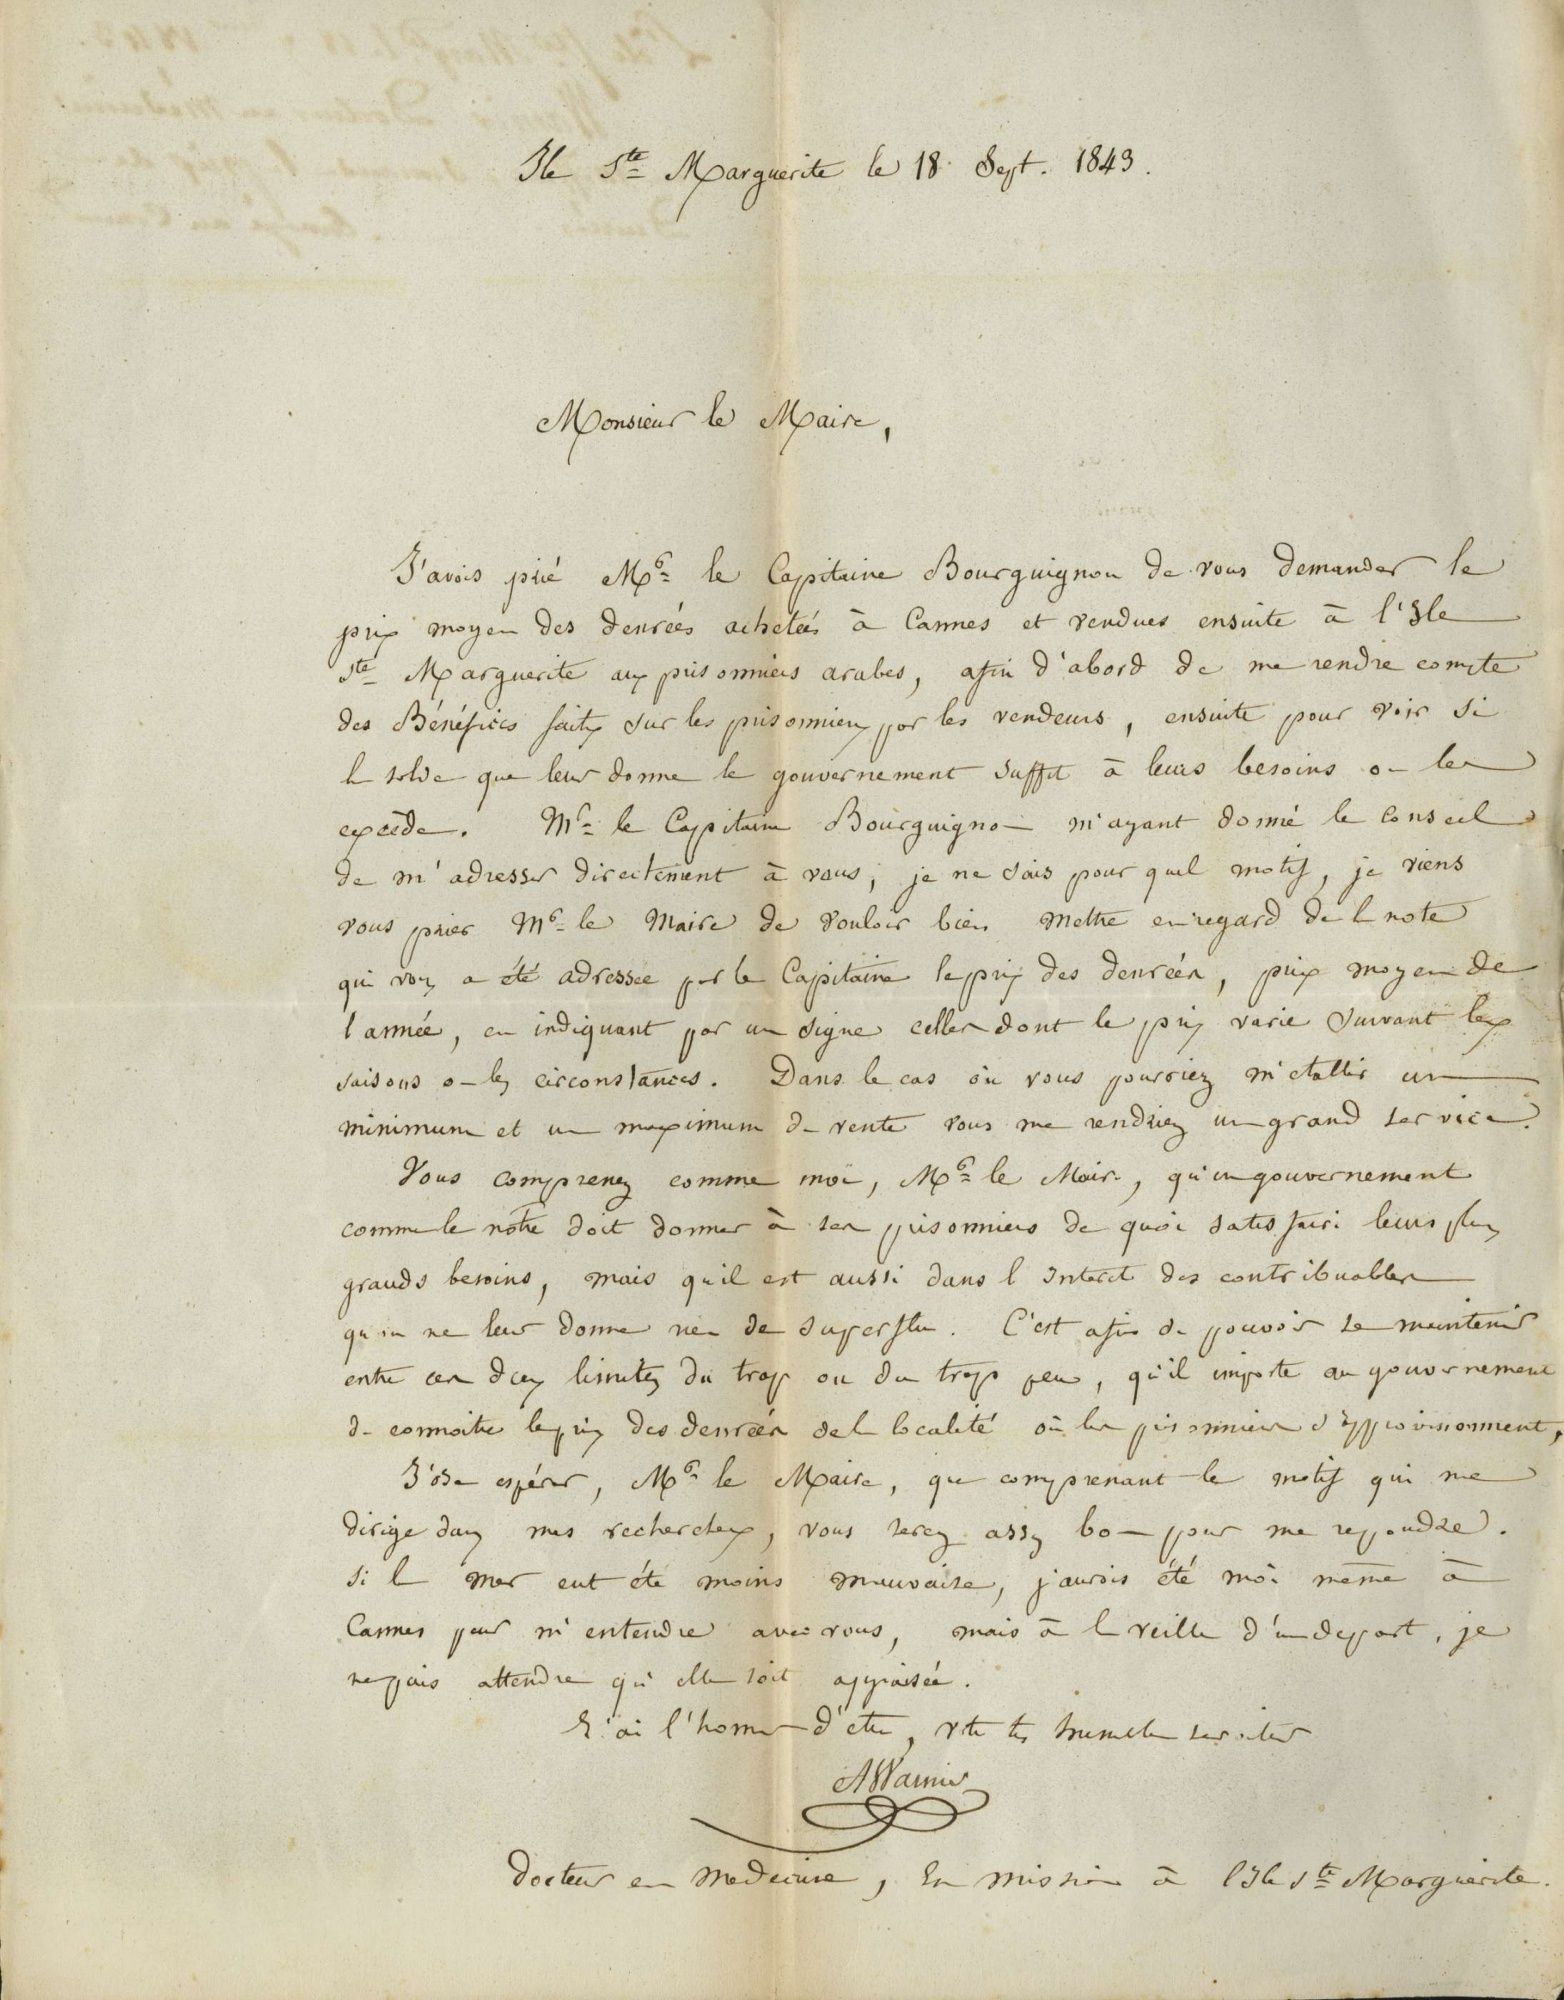 Ile Ste Marguerite le 18 Sept. 1843.
Monsieur le Maire,
J'avois prié Mr le Capitaine Bourguignon de vous demander le
prix moyen des denrées achetées à Cannes et vendues ensuite à l'Ile
Ste Marguerite aux prisonniers arabes, afin d'abord de me rendre compte
des Bénéfices faits sur les prisonniers par les vendeurs, ensuite pour voir si
la solde que leur donne le gouvernement suffit à leurs besoins ou les
excède. Mr le Capitaine Bourguignon m'ayant donné le conseil
de m'adresser directement à vous, je ne sais pour quel motif, je viens
vous prier Mr le Maire de vouloir bien mettre en regard de la note
qui vous a été adressée par le Capitaine le prix des denrées, prix moyen de
l'année, en indiquant par un signe celles dont le prix varie suivant les
saisons ou les circonstances. Dans le cas où vous pourriez m'etablir un
minimum et un maximum de vente vous me rendriez un grand service.
Vous comprenez comme moi, Mr le Maire, qu'un gouvernement
comme le notre doit donner à ses prisonniers de quoi satisfaire leurs plus
grands besoins, mais qu'il est aussi dans l'interet des contribuables
qu'on ne leur donne rien de superflu. C'est afin de pouvoir se maintenir
entre ces deux limites du trop ou du trop peu, qu'il importe au gouvernement
de connoitre le prix des denrées de la localité où les prisonniers s'approvisionnent,
J'ose espérer, Mr le Maire, que comprenant le motif qui me
dirige dans mes recherches, vous serez assez bon pour me repondre.
Si la mer eut été moins mauvaise, j'aurois été moi même à
Cannes pour m'entendre avec vous, mais à la veille d'un depart, je
ne puis attendre qu'elle soit appaisée.
J'ai l'honneur d'etre, vtre tes humble serviteur
AWarnier
Docteur en Medecine, En mission à l'Ile Ste Marguerite.